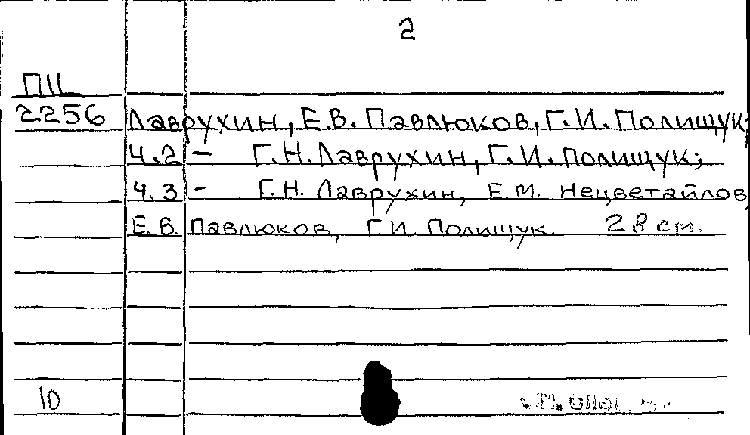 2
П11
2256 Лаврухин, Е.В. Павлюков, Г.И. Полищук;
Ч.2 - Г.Н. Лаврухин, Г.И. Полищук;
Ч.3 - Г.Н. Лаврухин, Е.М. Нецветайлов,
Е.В. Павлюков, Г.И. Полищук. 28 см.
10